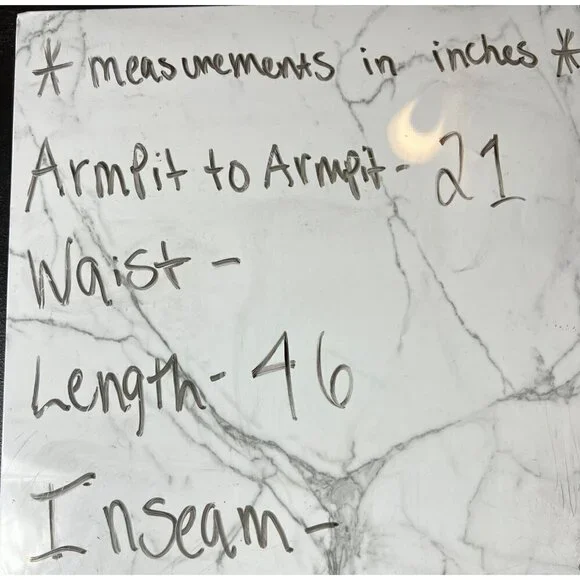 * measurements in inches *
ArmPit to Armpit - 21
Waist -
Length - 46
Inseam -